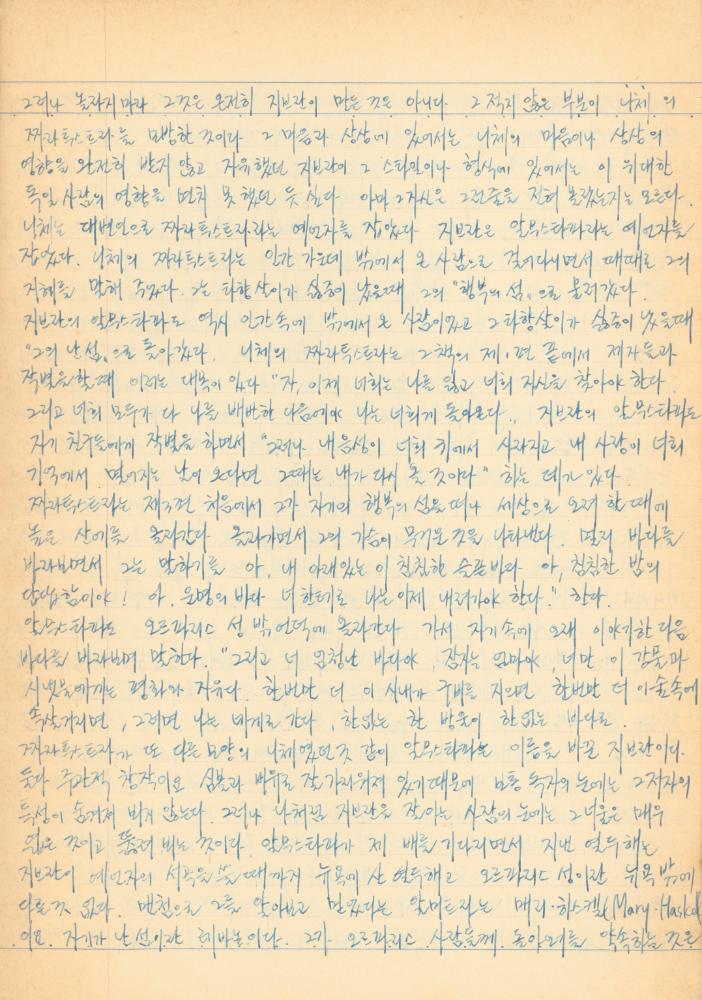 그러나 놀라지 마라 그것은 온전히 지브란이 만든 것은 아니다 그 적지 않은 부분이 니체의
짜라투스트라를 모방한 것이다 그 마음과 상상에 있어서는 니체의 마음이나 상상의
영향을 완전히 받지 않고 자유했던 지브란이 그 스타일이나 형식에 있어서는 이 위대한
독일 사람의 영향을 면치 못했던 듯 싶다 아마 그 자신은 그런줄을 전혀 몰랐는지는 모른다.
니체는 대변인으로 짜라투스트라라는 예언자를 잡았다 지브란은 알무스타파라는 예언자를
잡았다. 니체의 짜라투스트라는 인간 가운데 밖에서 온 사람으로 걸어다니면서 때때로 그의
지혜를 말해 주었다. 그는 타향살이가 싫증이 났을때 그의 "행복의 섬"으로 물러갔다.
지브란의 알무스타파도 역시 인간속에 밖에서 온 사람이었고 그 타향살이가 싫증이 났을때
"그의 난 섬"으로 돌아갔다. 니체의 짜라투스트라는 그 책의 제1편 끝에서 제자들과
작별을 할때 이러는 대목이 있다 "자, 이제 너희는 나를 잃고 너희 자신을 찾아야 한다.
그리고 너희 모두가 다 나를 배반한 다음에야 나는 너희게 돌아온다." 지브란의 알무스타파도
자기 친구들에게 작별을 하면서 "그러나 내 음성이 너희 귀에서 사라지고 내 사랑이 너희
기억에서 멀어지는 날이 온다면 그때는 내가 다시 올 것이다" 하는 데가 있다.
짜라투스트라는 제3편 처음에서 그가 자기의 행복의 섬을 떠나 세상으로 오려 할 때에
높은 산에를 올라간다 올라가면서 그의 가슴이 무거운 것을 나타낸다. 멀리 바다를
바라보면서 그는 말하기를 아, 내 아래있는 이 침침한 슬픈 바다 아, 침침한 밤의
답답함이야! 아, 운명의 바다 너한테로 나는 이제 내려가야 한다." 한다.
알무스타파도 오르파리스 성 밖 언덕에 올라간다 가서 자기 속에 오래 이야기한 다음
바다를 바라보며 말한다. "그리고 너 엄청난 바다야, 잠자는 엄마야 너만 이 강물과
시냇물에게는 평화와 자유다. 한번만 더 이 시내가 구비를 지으면 한번만 더 이 숲속에
속살거리면, 그러면 나는 네게로 간다, 한없는 한 방울이 한없는 바다로.
짜라투스트라가 또 다른 모양의 니체였던것 같이 알무스타파는 이름을 바꾼 지브란이다.
둘다 주관적 창작이요 심볼과 비유로 잘 가리워져 있기 때문에 보통 독자의 눈에는 그 저자의
특성이 숨겨져 뵈지 않는다. 그러나 니체같고 지브란을 잘 아는 사람의 눈에는 그 너울은 매우
엷은 것이고 뚫려 뵈는 것이다. 알무스타파가 제 배를 기다리면서 지낸 열두해는
지브란이 예언자의 서곡을 쓸 때까지 뉴욕에 산 열두해고 오르파리스 성이란 뉴욕 밖에
다른것 없다. 맨첨으로 그를 알아보고 믿었다는 알미트라는 메리·하스켈(Mary·Haskell
이요. 자기가 난 섬이란 레바논이다. 그가 오르파리스 사람들께 돌아오려를 약속하는 것은